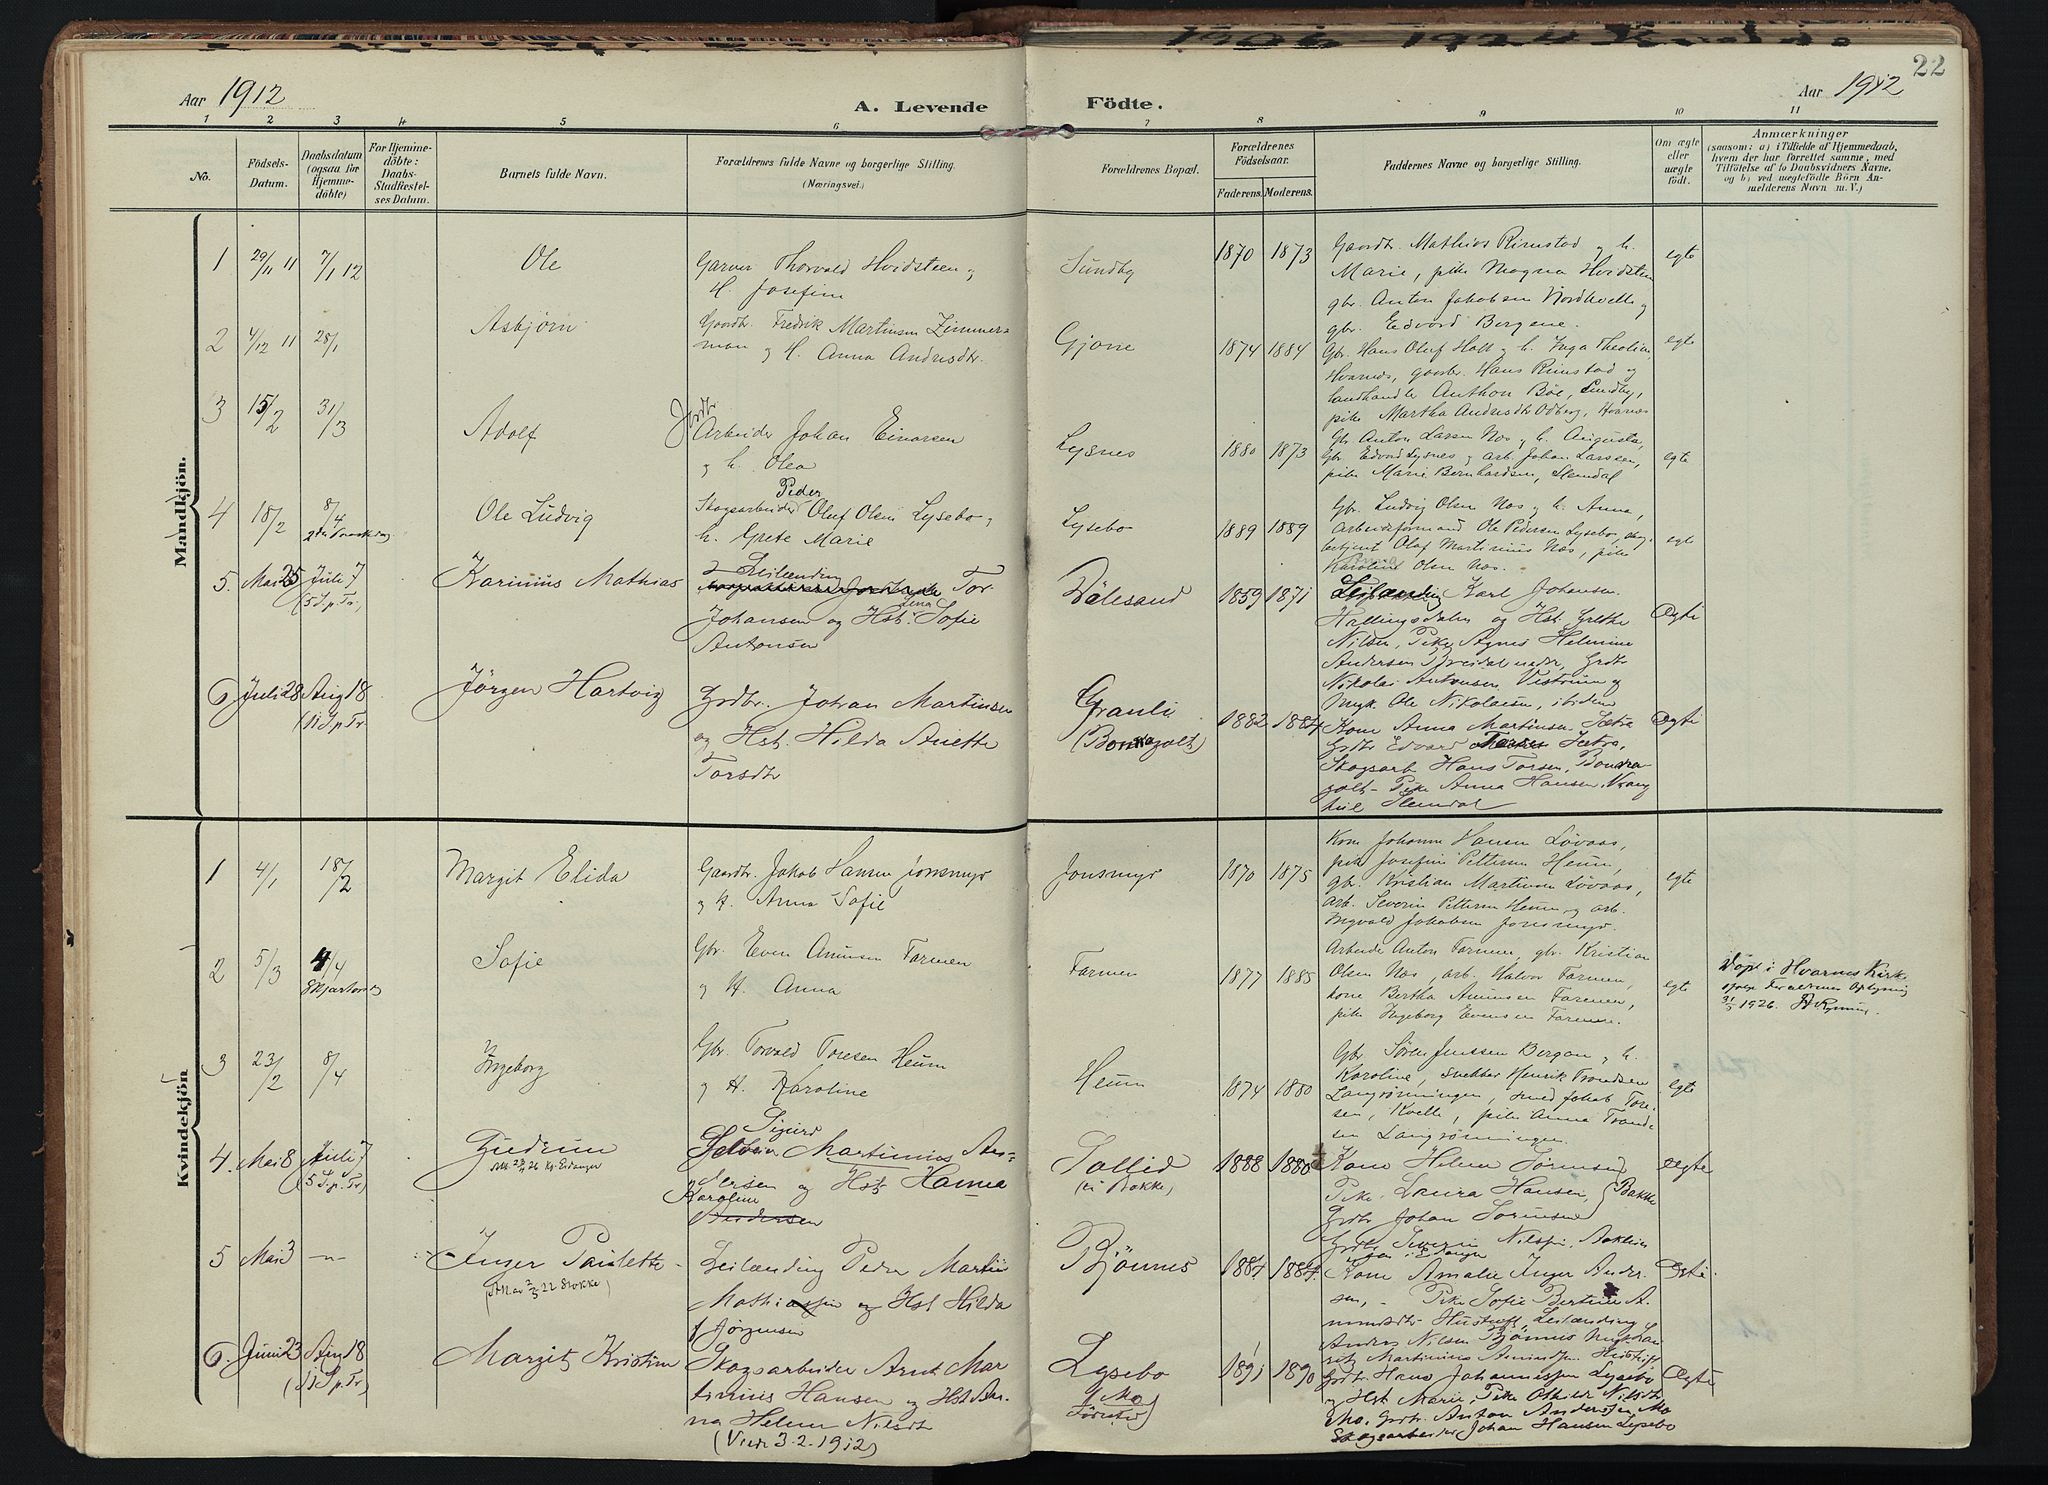 22
Aar 1912
A. Levende
Födte.
Aar 1912
1 2 3 4 5 6 7 8 9 10 11
No.
Födsels-Datum.
Daabsdatum (ogsaa for Hjemmedöbte)
For Hjemmedöbte: Daabs-Stadfæstelses Datum.
Barnets fulde Navn.
Forældrenes fulde Navne og borgerlige Stilling.
(Næringsvei.)
Forældrenes Bopæl.
Forældrenes Födselsaar.
Faderens. Moderens.
Faddernes Navne og borgerlige Stilling.
Om ægte eller uægte födt.
Anmærkninger
(saasom: a) i Tilfælde af Hjemmedaab,
hvem der har forrettet samme, med
Tilföielse af to Daabsvidners Navne,
og b) ved uægtefödte Börn An-
melderens Navn m. V.)
Mandkjön.
1 29/11 11 7/1 12 Ole
Garver Thorvald Hvidsteen og
H. Josefine
Sundby 1870 1873
Gaardb. Mathias Rimstad og h.
Marie, pike Magna Hvidsten
gbr. Anton Jakobsen Nordkvelle og
gbr. Edvard Bergene.
egte
2 4/12 11 28/1 Asbjörn
Gaardbr. Fredrik Martinsen Zimmer-
man og H. Anna Andersdtr.
Gjone 1874 1884
Gbr. Hans Oluf Holt og h. Inga Theoline
Hvarnes, gaardbr. Hans Rimstad og
landhandler Anthon Böe, Sundby,
pike Martha Andersdtr Odberg, Hvarnes
egte
3 15/2 31/3 Adolf
Jrdbr
Arbeider Johan Einarsen
og h. Olea
Lysnes 1880 1873
Gbr. Anton Larsen Næs og h. Augusta,
Gbr. Edvard Lysnes og arb. Johan Larssen,
pike Marie Bernhardsen, Stendal
egte
4 18/2 8/4 2den Paaskedag Ole Ludvig
Peder
Skogsarbeider Oluf Olsen Lysebo og
h. Grete Marie
Lysebo 1889 1889
Gbr. Ludvig Olsen Næs og h. Anna,
Arbeidsformand Ole Pedersen Lysebo, skog-
betjent Olaf Martinius Næs, pike
Karoline Olsen Næs.
egte
5. Mai 25 Juli 7 (5 S. p. Tr.) Karinius Mathias
Leilænding
Tor
Johansen og Hst. Lina Sofie
Antonsen
Vålesand 1859 1871
Leilænding Karl Johansen
Hallingsdalen og Hst. Grethe
Nilsen, Pike Agnes Helmine
Andersen Breidal nedre, Grdbr
Nikolai Antonsen Vestrum og
Ungk. Ole Nikolaisen, ibidem
Ægte
6 Juli 28 Aug 18 (11 S. p. Tr. Jörgen Hartvig
Grdbr. Johan Martinsen
og Hst. Hilda Anette
Torsdtr
Granli
(Bonkagolt)
1882 1884
Kone Anna Martinsen Sætra
Grdbr Edvard Torsen Sætra,
Skogsarb. Hans Torsen, Bonka-
golt - Pike Anna Hansen, Vrang-
Stendal
Ægte
Kvindekjön
1 4/1 18/2 Margit Elida
Gaardbr. Jakob Hansen Jonsmyr
og H. Anna Sofie
Jonsmyr 1870 1875
Kone Johanne Hansen Lövaas,
pike Josefine Pettersen Heum,
gbr. Kristian Martinsen Lövaas,
arb. Severin Pettersen Heum og arb.
Ingvald Jakobsen Jonsmyr.
egte
2 5/3 4/4 Skjærtorsdag Sofie
Gbr. Even Amunsen Farmen
og H. Anna
Farmen 1877 1885
Arbeider Anton Farmen, gbr. Kristian
Olsen Næs, arb. Halvor Farmen,
kone Bertha Amunsen Farmen,
pike Ingeborg Evensen Farmen.
egte
Döpt i Hvarnes Kirke
ifölge forældrenes Oplysning
31/5 1926.
3 23/2 8/4 Ingeborg
Gbr. Torvald Toresen Heum
og H. Karoline
Heum 1874 1880
Gbr. Sören Jenssen Bergan og h.
Karoline, snekker Henrik Trondsen
Langrönningen, smed Jakob Tore-
sen, Kvelle, pike Anna Trond-
sen Langrönningen.
egte
4. Mai 8 Juli 7 (5 S. p. Tr) Gudrun
Sigurd
Martinius An-
dersen og Hst. Hanna
Karoline
Andersen
Sollid
(u. Bakke)
1888 1888
Kone Helene Sörensen
Pike Laura Hansen, Bakke
Grdbr Johan Sörensen
Grdbr Severin Nilsen, Bakken
Ægte
5 Mai 3 -"- Inger Paulette
Leilænding Peder Martin
Mathiassen og Hst Hilda
f. Jörgensen
Björnes 1884 1884
Kone Amalie Inger Ander-
sen, - Pike Sofie Bertine A-
mundsdtr Hustuft, Leilænding
Anders Nilsen Björnes Ungk. Lau-
ritz Martinius Amundsen Hustuft
Ægte
6. Juni 23 Aug 18 (11 S. p. Tr) Margit Kristine
Skogsarbeider Arnt Mar-
tinius Hansen og Hst An-
na Helene Nilsdtr
(Viede 3.2.1912)
Lysebo
(Mo
Födested)
1891 1890
Grdbr. Hans Johannessen Lysebo
og Hst Marie, Pike Othilde Nilsdtr
Mo, Grdbr. Anton Andersen Mo
Skogsarbeider Johan Hansen Lysebo
Ægte